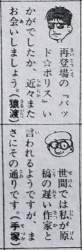 再登場の『バッ
ド☆ポリス』い
かがでしたか。近々また
お会いしましょう。(猿渡)
世間では私が原
稿の遅い作家と
言われるようですが、ま
さにその通りです。(手塚)